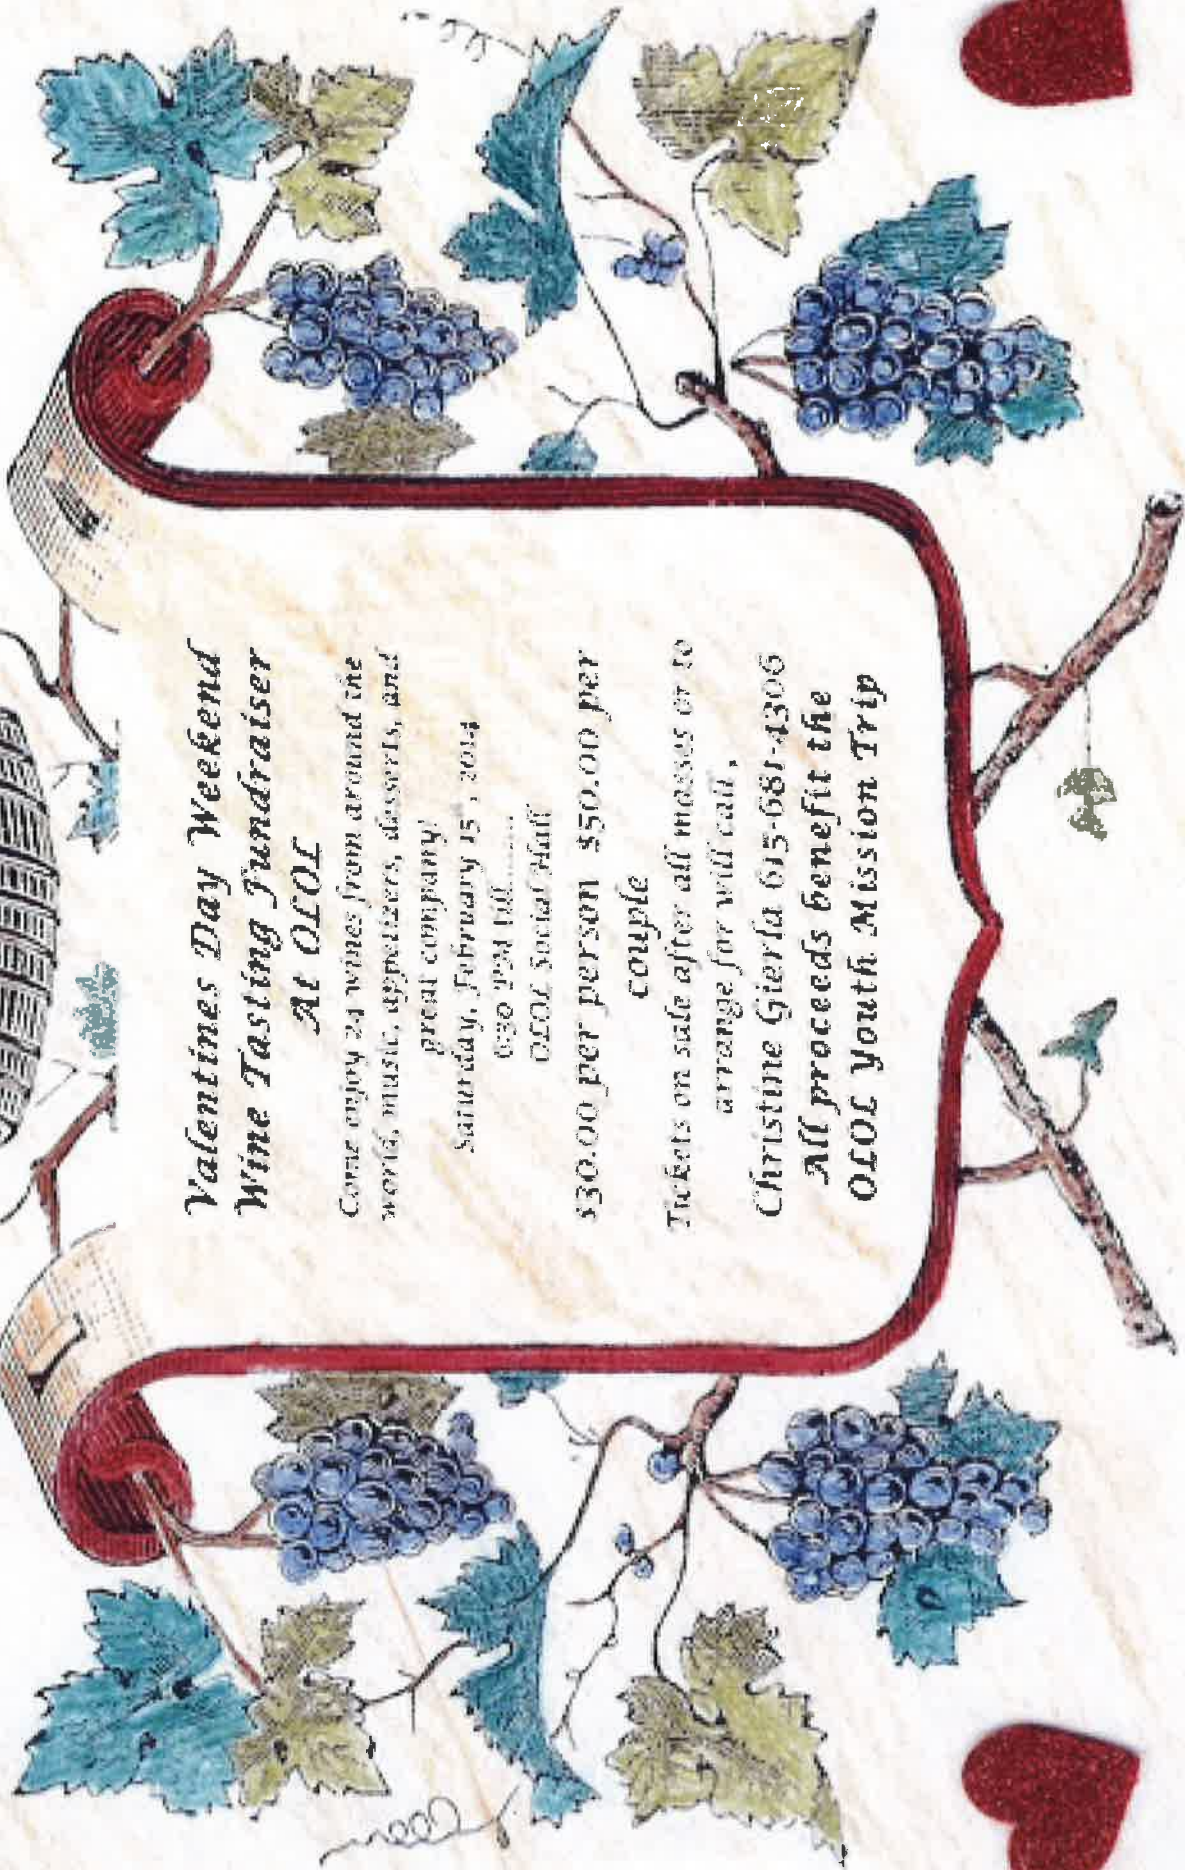 Valentines Day Weekend
Wine Tasting Fundraiser
At OLOL
Come enjoy 24 wines from around the
world, music, appetizers, desserts, and
great company!
Saturday, February 15th, 2014
6:30 PM till.......
OLOL Social Hall
$30.00 per person $50.00 per
couple
Tickets on sale after all masses or to
arrange for will call,
Christine Gierla 615-681-4306
All proceeds benefit the
OLOL Youth Mission Trip